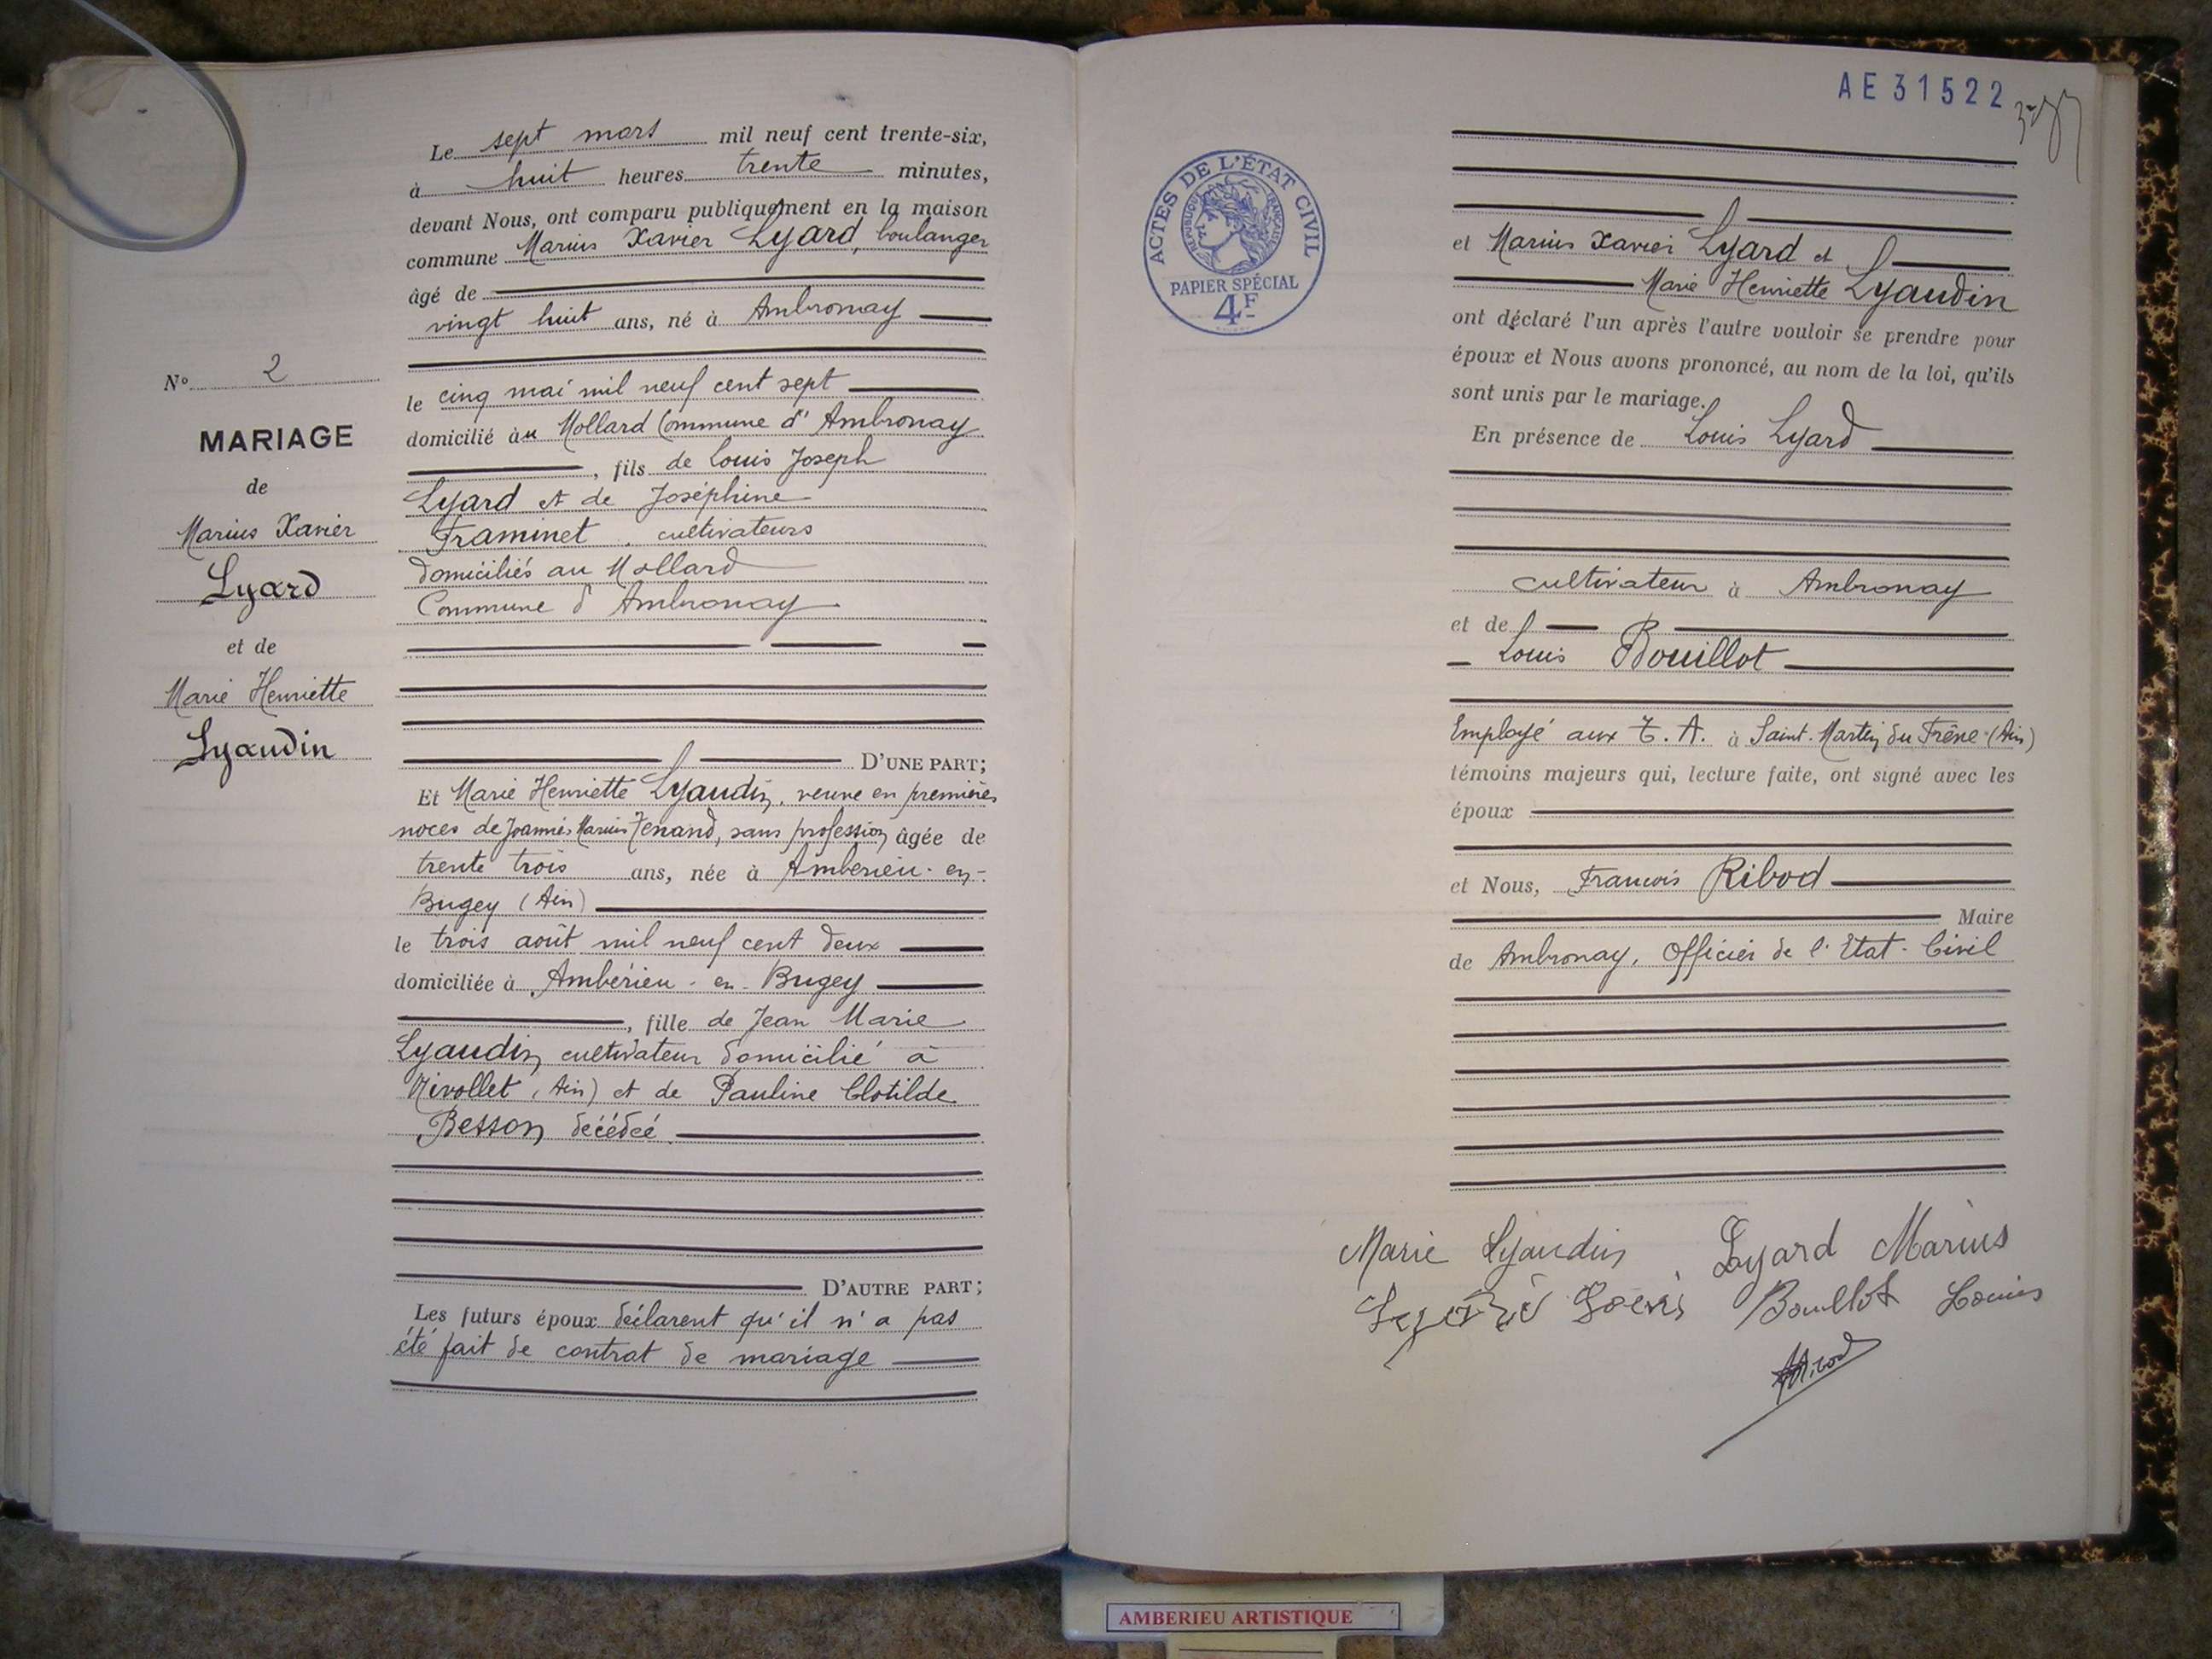 Le sept mars mil neuf cent trente-six,
à huit heures trente minutes,
devant Nous, ont comparu publiquement en la maison
commune Marius Xavier Lyard, boulanger
âgé de
vingt huit ans, né à Ambronay
le cinq mai mil neuf cent sept
domicilié au Mollard Commune d'Ambronay
, fils de Louis Joseph
Lyard et de Joséphine
Framinet, cultivateurs
domiciliés au Mollard
Commune d'Ambronay
D'UNE PART;
Et Marie Henriette Lyaudin, veuve en premières
noces de Joannès Marius Tenand, sans profession âgée de
trente trois ans, née à Ambérieu-en-
Bugey (Ain)
le trois août mil neuf cent deux
domiciliée à Ambérieu-en-Bugey
, fille de Jean Marie
Lyaudin, cultivateur domicilié à
Nivollet (Ain) et de Pauline Clotilde
Besson décédée
D'AUTRE PART;
Les futurs époux déclarent qu'il n'a pas
été fait de contrat de mariage
N° 2
MARIAGE
de
Marius Xavier
Lyard
et de
Marie Henriette
Lyaudin
AE 31522
ACTES DE L'ÉTAT CIVIL
RÉPUBLIQUE FRANÇAISE
PAPIER SPÉCIAL
4F
et Marius Xavier Lyard et
Marie Henriette Lyaudin
ont déclaré l'un après l'autre vouloir se prendre pour
époux et Nous avons prononcé, au nom de la loi, qu'ils
sont unis par le mariage.
En présence de Louis Lyard
cultivateur à Ambronay
et de
Louis Bouillot
Employé aux T. A. à Saint-Martin du Frêne (Ain)
témoins majeurs qui, lecture faite, ont signé avec les
époux
et Nous, François Ribod
Maire
de Ambronay, Officier de l'Etat-Civil
Marie Lyaudin Lyard Marius
Louis Bouillot Louis
Ribod
AMBERIEU ARTISTIQUE